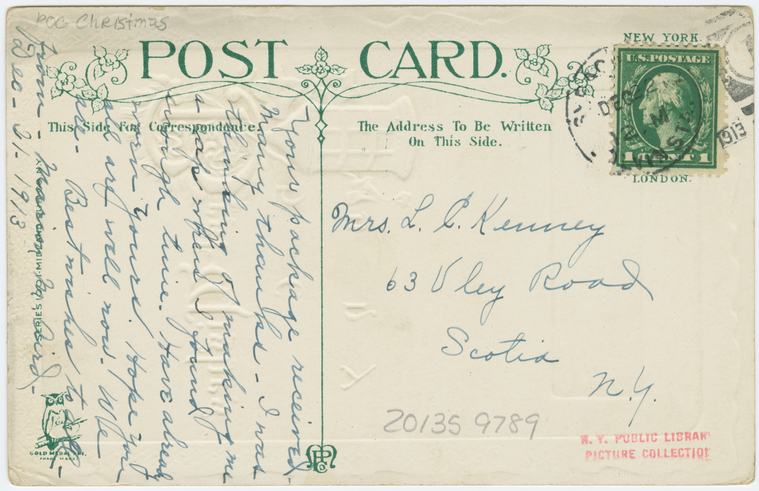 POG Christmas
POST CARD.
NEW YORK.
U.S. POSTAGE
1 1
LONDON.
1913
This Side For Correspondence.
The Address To Be Written
On This Side.
Your package received.
Many thanks - I was
thinking of making me
a cap when I found
enough time. Have already
worn yours. Hope you
all are well now. We
are. Best wishes to all,
From - Marion
Dec - 21 - 1913
Mrs. L. C. Kenney
63 Vley Road
Scotia
N.Y.
20135 9789
N. Y. PUBLIC LIBRAR
PICTURE COLLECTION
GOLD MEDAL ART.